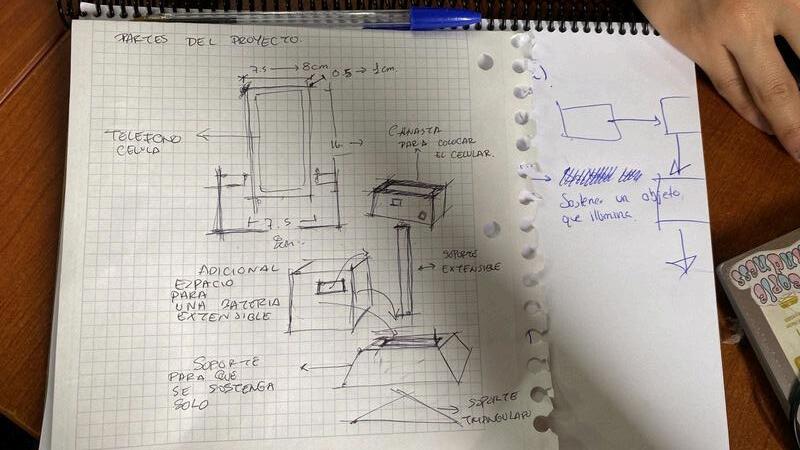 PARTES DEL PROYECTO.
7.5 → 8cm
0.5 → 1cm.
TELEFONO
CELULA
16
CANASTA
PARA COLOCAR
EL CELULAR.
7.5
8cm.
ADICIONAL
EZPACIO
PARA
UNA BATERIA
EXTENSIBLE
SOPORTE
EXTENSIBLE
SOPORTE
PARA QUE
SE SOSTENGA
SOLO
SOPORTE
TRIANGULADO
Sostener un objeto
que illumina.